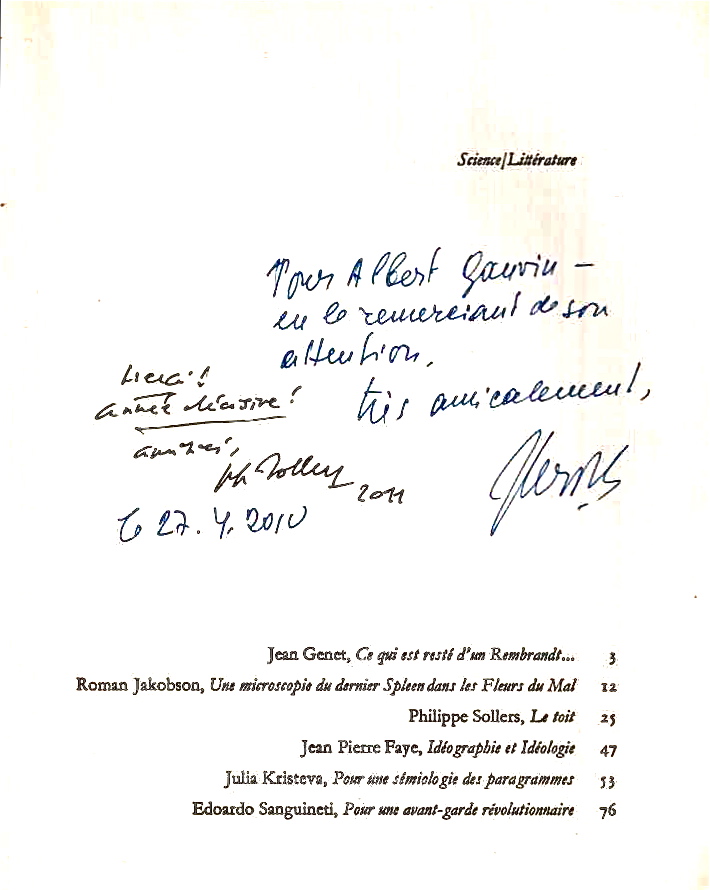 Science/Littérature
Pour Albert Gauvin –
en le remerciant de son
attention,
très amicalement,
Merci !
année décisive !
amitiés,
Ph. Sollers
2011
le 27. 4. 2010
Jean Genet, Ce qui est resté d'un Rembrandt... 3
Roman Jakobson, Une microscopie du dernier Spleen dans les Fleurs du Mal 12
Philippe Sollers, Le toit 25
Jean Pierre Faye, Idéographie et Idéologie 47
Julia Kristeva, Pour une sémiologie des paragrammes 53
Edoardo Sanguineti, Pour une avant-garde révolutionnaire 76